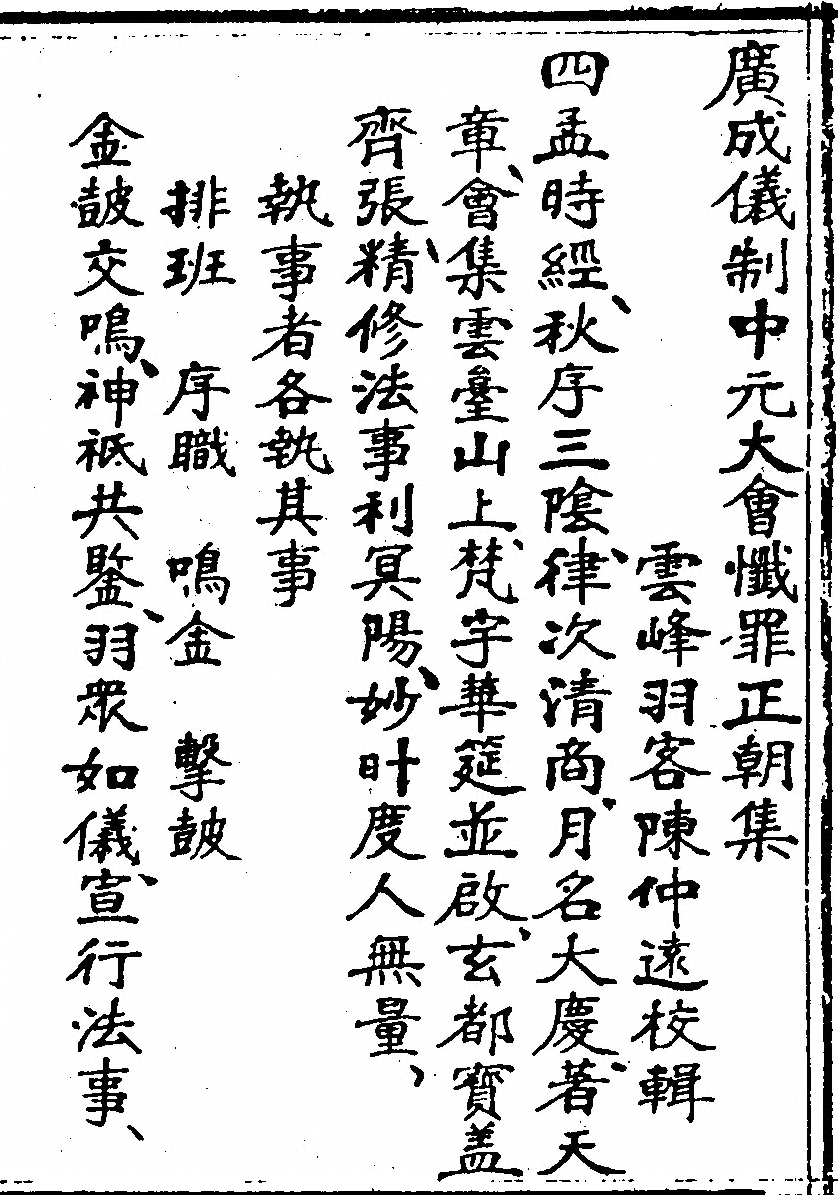 廣成儀制中元大會懺罪正朝集
雲峰羽客陳仲遠校輯
四孟時經、秋序三陰、律次清商、月名大慶、著天
章、會集雲臺山上、梵宇華筵並啟、玄都寶盖
齊張、精修法事利冥陽、妙叶度人無量、
執事者各執其事
排班　序職　鳴金　擊皷
金皷交鳴、神祗共鑒、羽衆如儀、宣行法事、